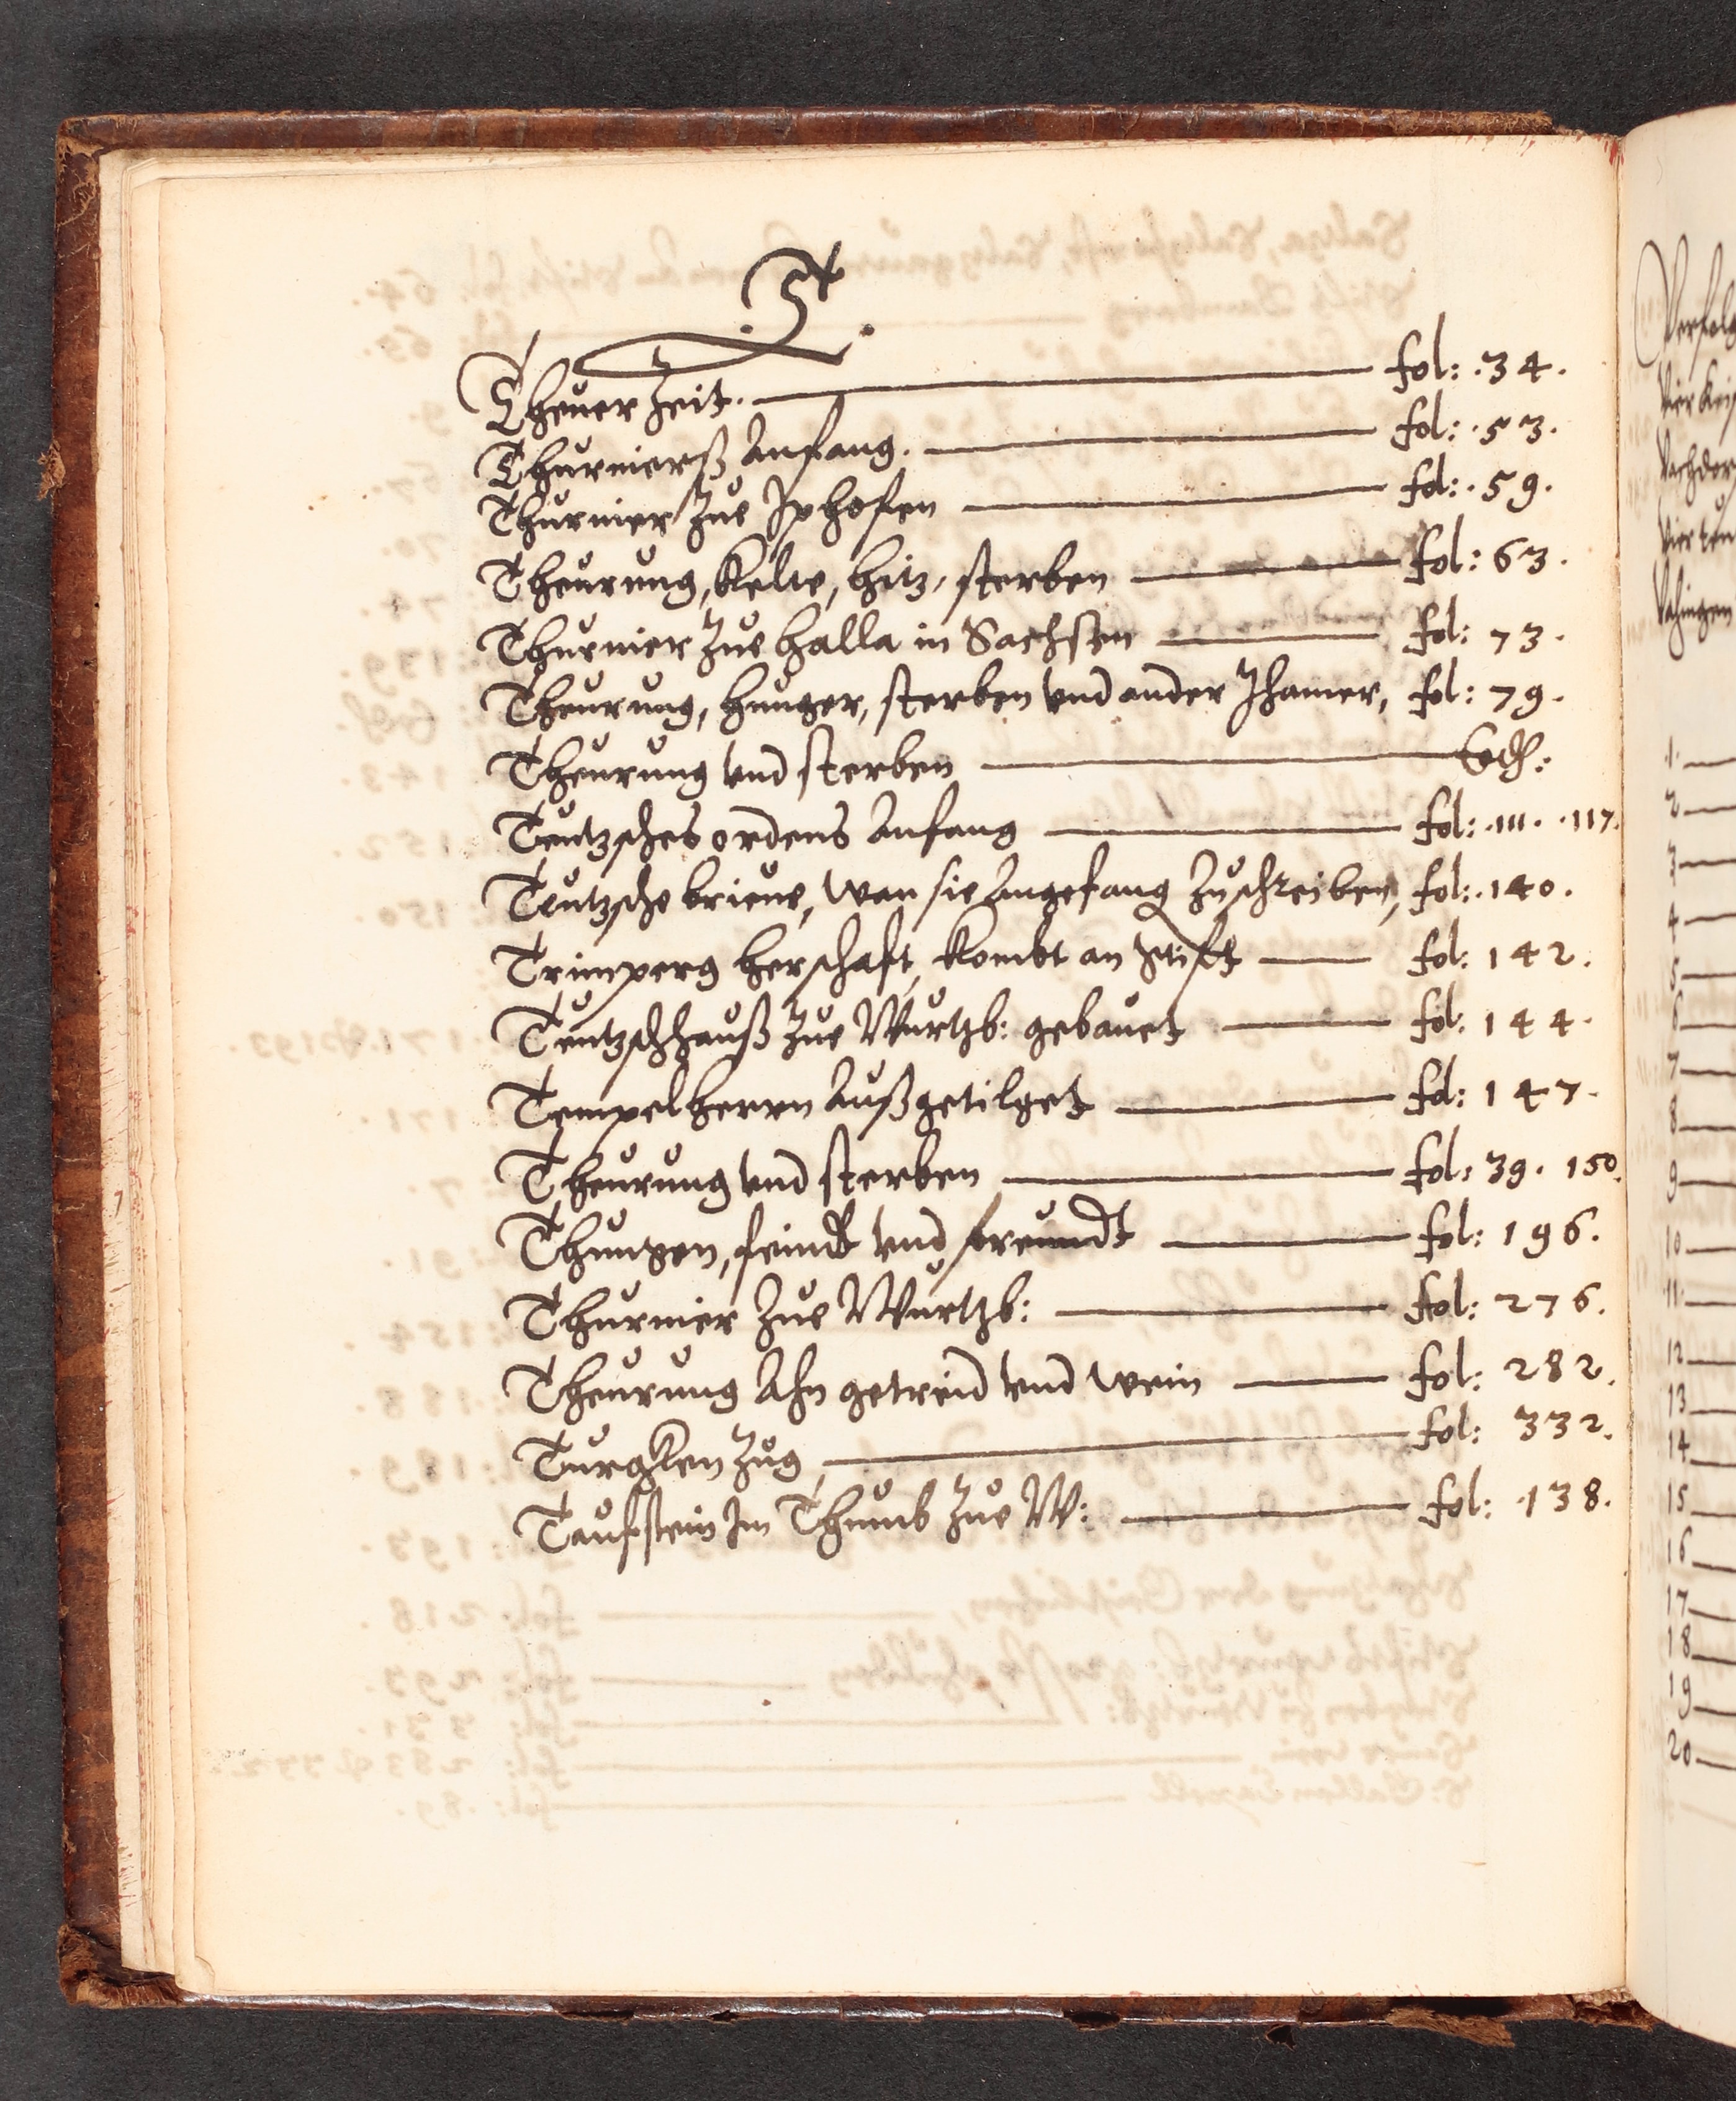 .T.
Theuer Zeit. fol: .34.
Thurnierß Anfang. fol: .53.
Thurnier zue Iphofen fol: .59.
Theurung, Kelte, hitz, sterben fol: 63.
Thurnier zue Halla in Sachssen fol: 73.
Theurung, hunger, sterben vnd ander Jhamer, fol: 79.
Theurung vnd sterben Eod:
Teutzsches ordens Anfang fol: .111. .117.
Teutzsche brieue, wan sie Angefang Zuschreiben, fol: .140.
Trimperg herschaft, Kombt an Stifft fol: 142.
Teutzschhauß zue Wurtzb: gebauet fol: 144.
Tempelherrn Außgetilget fol: 147.
Theurung vnd sterben fol: 39. 150.
Thungen, feindt vnd freundt fol: 196.
Thurnier zue Wurtzb: fol: 276.
Theurung Ahn getreid vnd wein fol: 282.
Turgken Zug, fol: 332.
Taufstein Im Thumb zue W: fol: .138.
1.
2
3
4
5
6
7
8
9
10
11
12
13
14
15
16
17
18
19
20